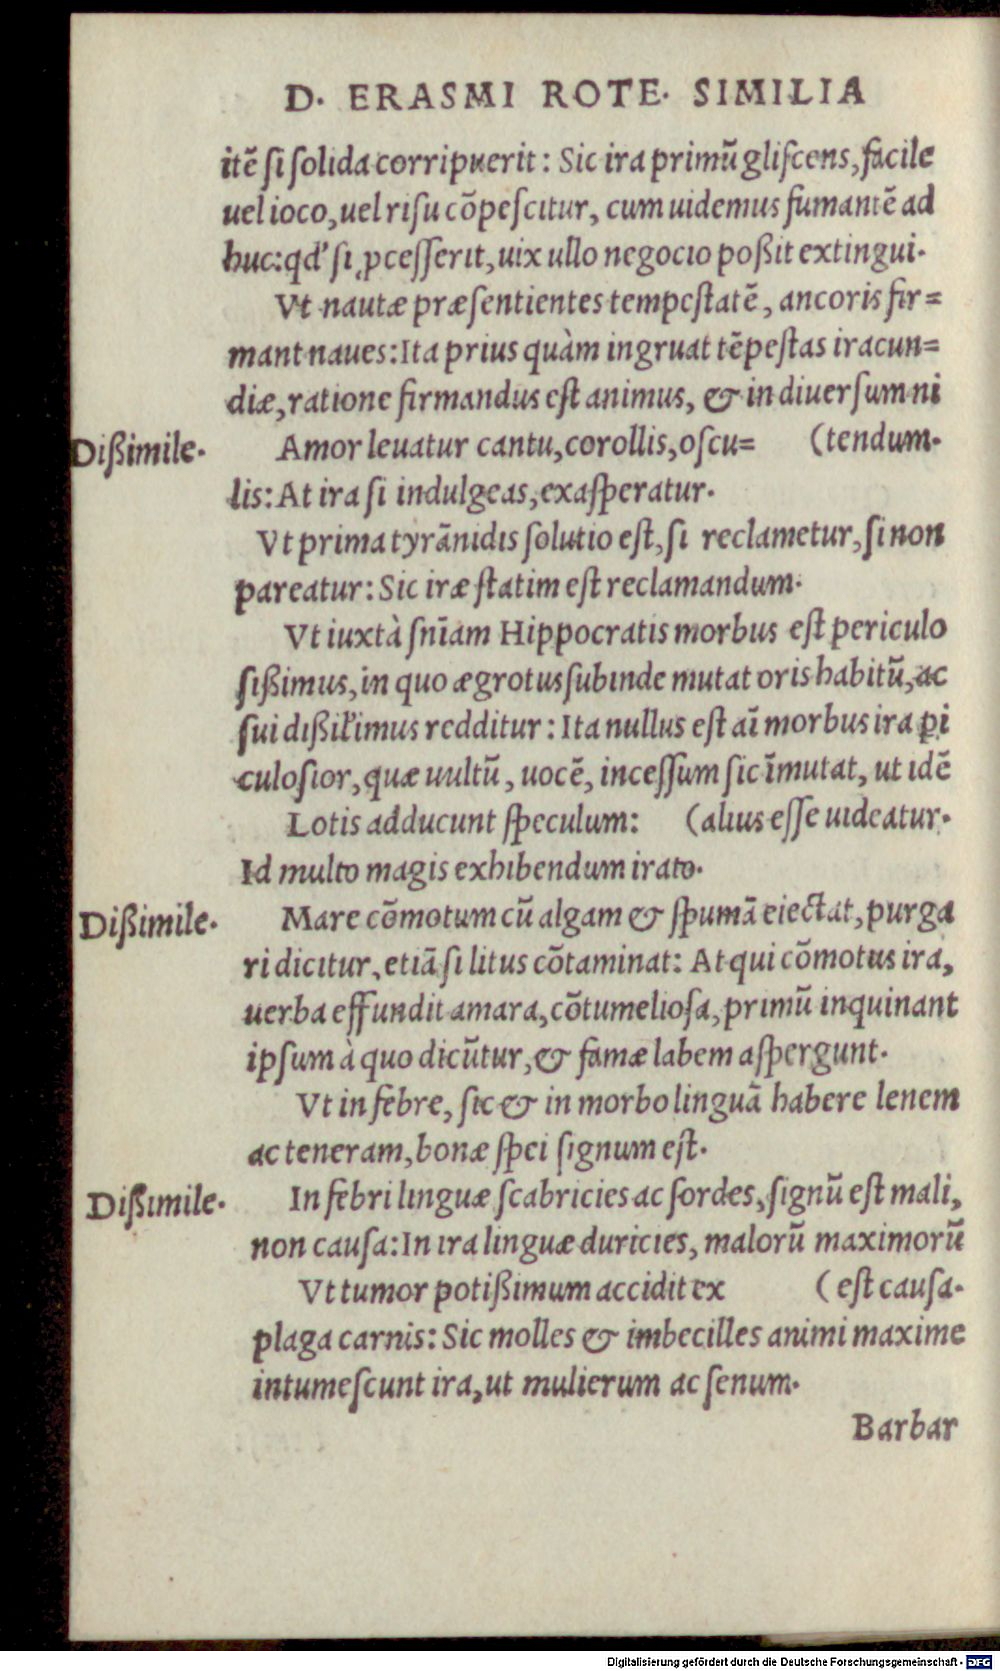 D. ERASMI ROTE. SIMILIA
itē ſi ſolida corripuerit: Sic ira primū gliſcens, facile
uel ioco, uel riſu cōpeſcitur, cum uidemus fumantē ad
huc: qď ſi ꝓceſſerit, uix ullo negocio poßit extingui.
Vt nautæ præſentientes tempeſtatē, ancoris fir=
mant naues: Ita prius quàm ingruat tēpeſtas iracun=
diæ, ratione firmandus eſt animus, & in diuerſum ni
Dißimile.
Amor leuatur cantu, corollis, oſcu= (tendum.
lis: At ira ſi indulgeas, exaſperatur.
Vt prima tyrānidis ſolutio eſt, ſi reclametur, ſi non
pareatur: Sic iræ ſtatim eſt reclamandum.
Vt iuxtà ſnīam Hippocratis morbus eſt periculo
ſißimus, in quo ægrotus ſubinde mutat oris habitū, ac
ſui dißil'imus redditur: Ita nullus eſt aī morbus ira ꝑi
culoſior, quæ uultū, uocē, inceſſum ſic īmutat, ut idē
Lotis adducunt ſpeculum: (alius eſſe uideatur.
Id multo magis exhibendum irato.
Dißimile.
Mare cōmotum cū algam & ſpumā eiectat, purga
ri dicitur, etiā ſi litus cōtaminat: At qui cōmotus ira,
uerba effundit amara, cōtumelioſa, primū inquinant
ipſum à quo dicūtur, & famæ labem aſpergunt.
Vt in febre, ſic & in morbo linguā habere lenem
ac teneram, bonæ ſpei ſignum eſt.
Dißimile.
In febri linguæ ſcabricies ac ſordes, ſignū eſt mali,
non cauſa: In ira linguæ duricies, malorū maximorū
Vt tumor potißimum accidit ex (eſt cauſa.
plaga carnis: Sic molles & imbecilles animi maxime
intumeſcunt ira, ut mulierum ac ſenum.
Barbar
Digitalisierung gefördert durch die Deutsche Forschungsgemeinschaft - DFG